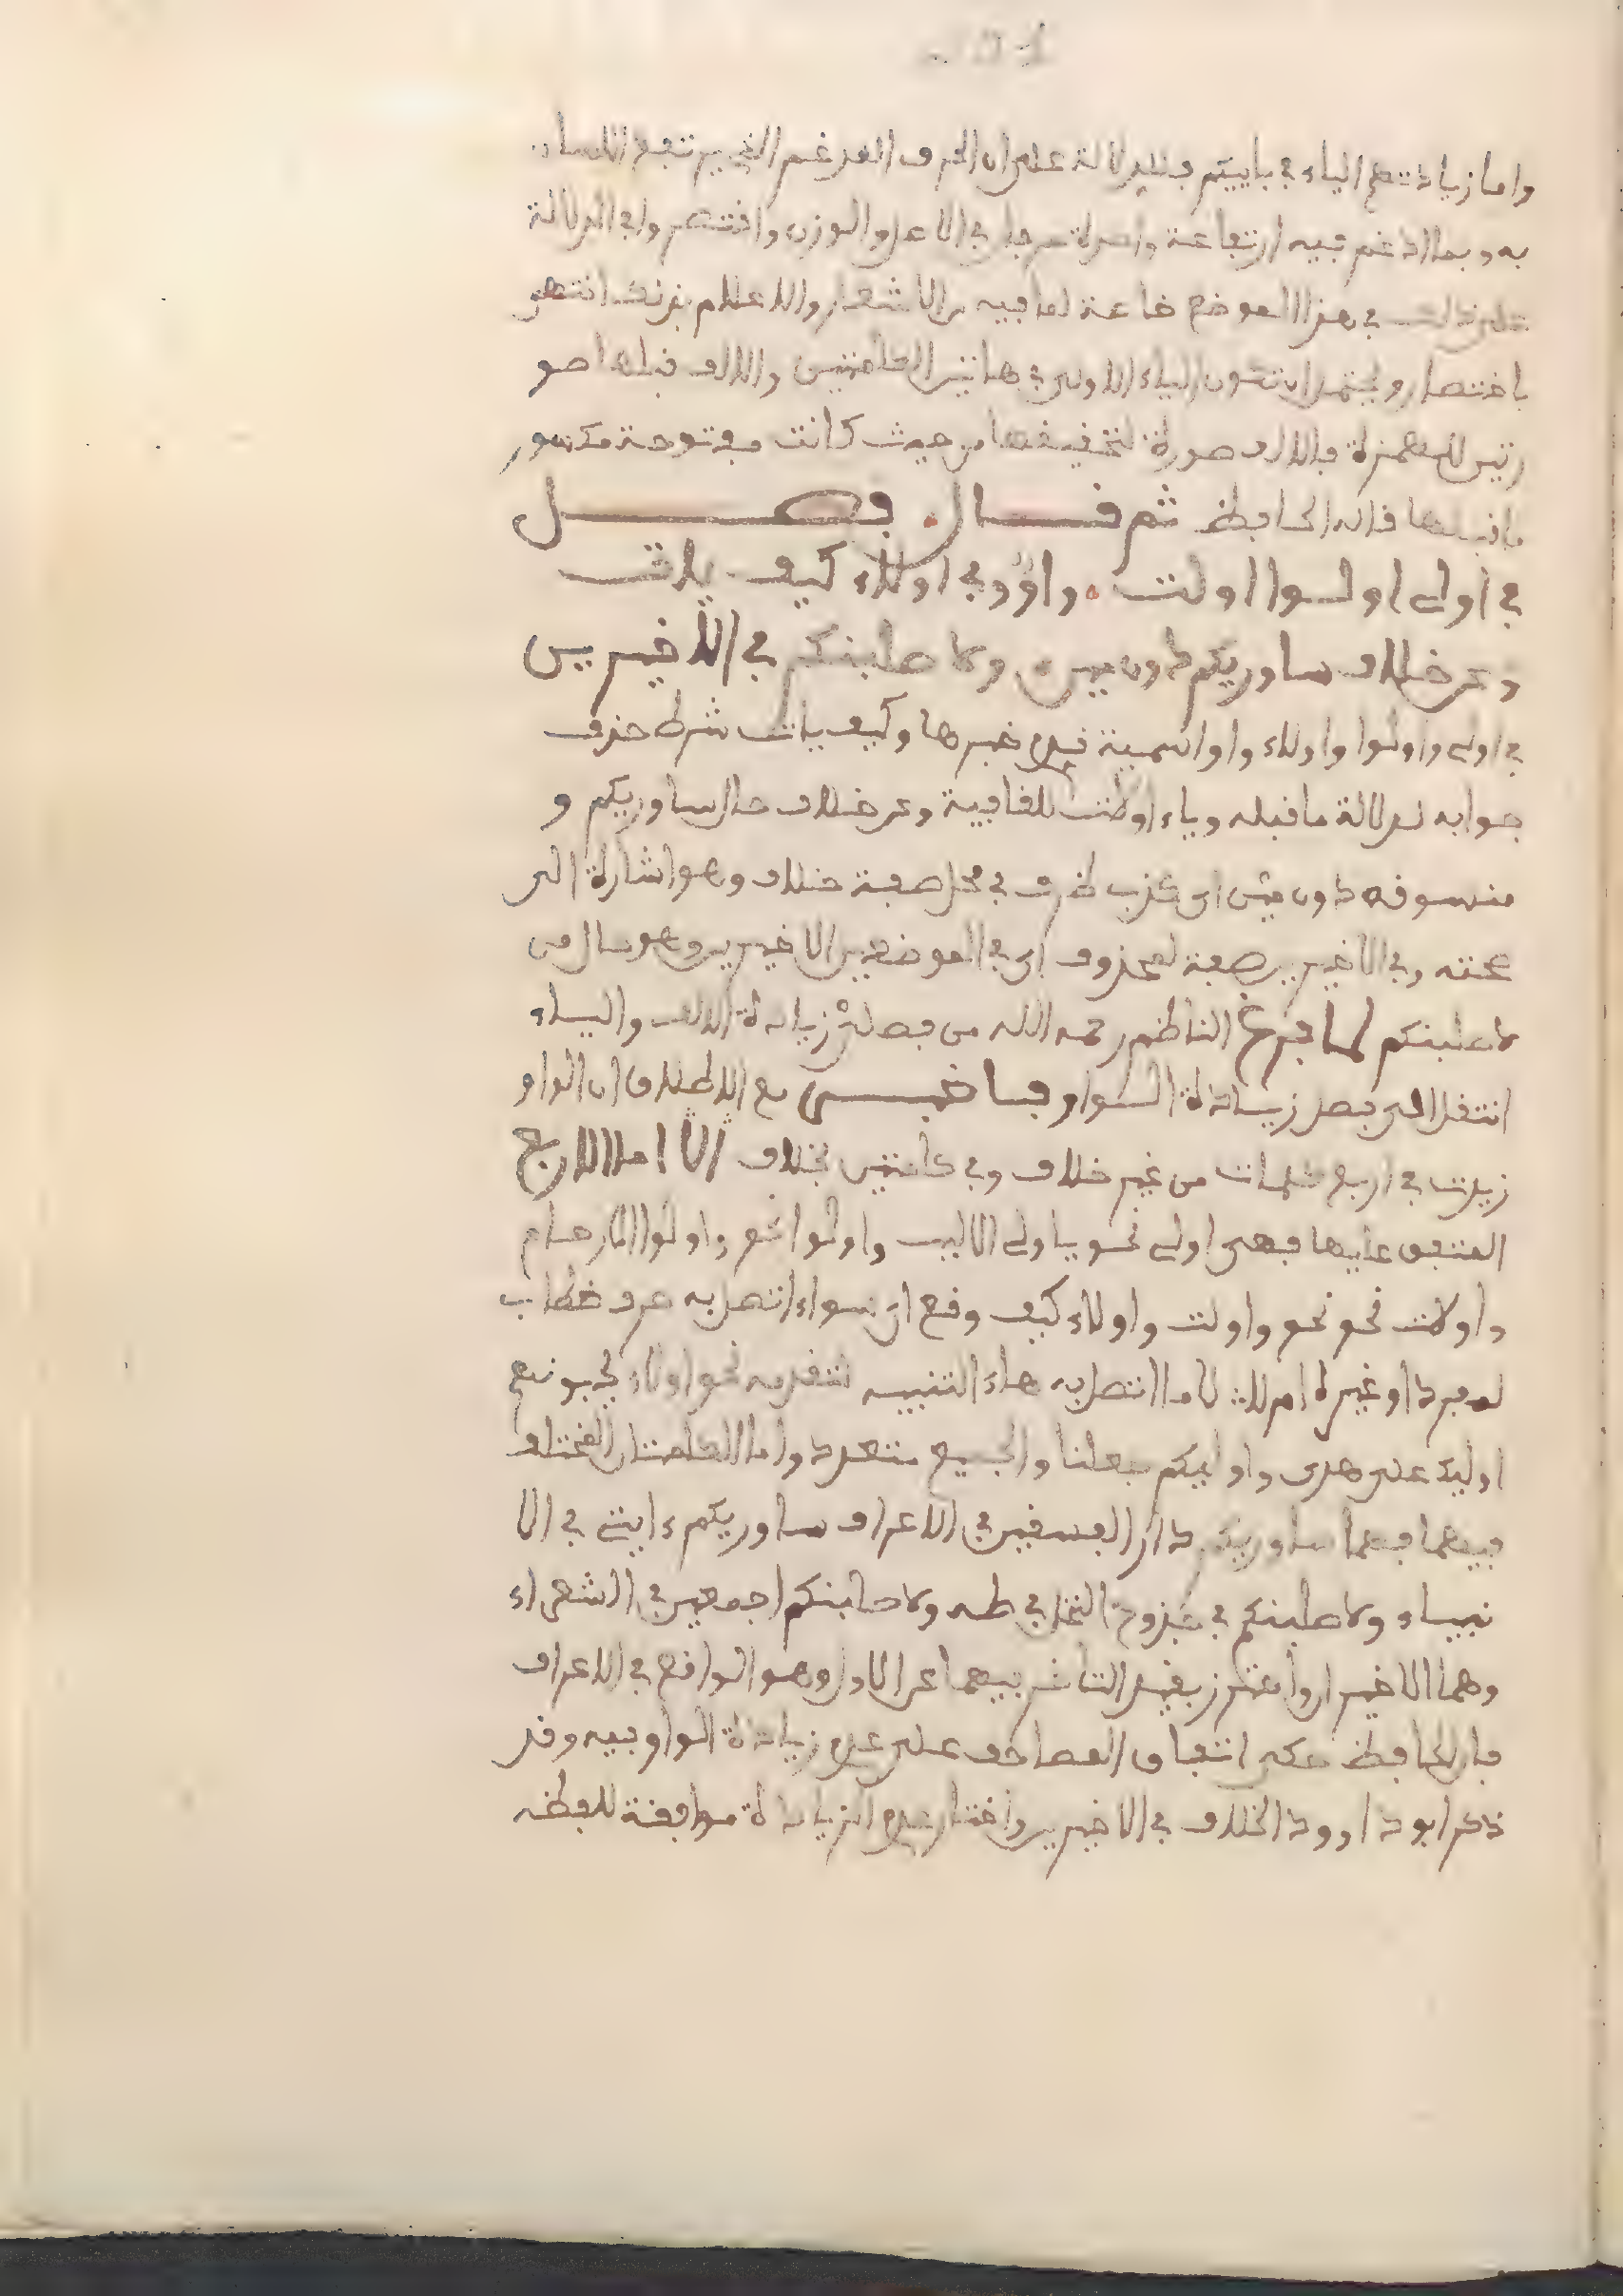 واما زيادتهم الياء في باييكم فللدلالة على ان الحرف المدغم الذي يرتفع اللسان
به وبما ادغم فيه ارتفاعة واحدة حرفان في الاصل والوزن واقتصروا في الدلالة
على ذلك في هذا الموضع خاصة لما فيه من الاشعار والاعلام بذلك انتهى
باختصار ويحتمل ان تكون الياء الاولى في هاتين الكلمتين والالف قبلها صو
رتين للهمزة فالالف صورة لتخفيفها من حيث كانت مفتوحة مكسور
ما قبلها قاله الحافظ ثم قال فصل
في اولى اولوا اولت واو وفي اولاء كيف ياتي
وعن خلاف ساوريكم دون مين ولاصلبنكم في الاخيرين
في اولى واولوا واولاء واو اسمية قدم خبرها وكيف ياتي شرط حذف
جوابه لدلالة ما قبله وياء اولات للقافية وعن خلاف حال ساوريكم و
منسوقه دون مين اي كذب ظرف في محل صفة خلاف وهو اشارة الى
صحته وفي الاخيرين صفة لمحذوف اي في الموضعين الاخيرين وهو حال من
لاصلبنكم لما فرغ الناظم رحمه الله من فصلي زيادة الالف والياء
انتقل الى فصل زيادة الواو فاخبر مع الاطلاق ان الواو
زيدت في اربع كلمات من غير خلاف وفي كلمتين بخلاف الا اما الاربع
المتفق عليها فهي اولى نحو ياولى الالبب واولوا نحو واولوا الارحام
واولات نحو نحو واولت واولاء كيف وقع اي سواء اتصل به حرف خطاب
لمفرد او غيره ام لا لا ما اتصل به هاء التنبيه لتقدمه نحو اولاء تحبونهم
اوليك على هدى واوليكم جعلنا والجميع متعدد واما الكلمتان المختلف
فيهما فهما ساوريكم دار الفسقين في الاعراف ساوريكم ءايتي في الا
نبياء ولاصلبنكم في جذوع النخل في طه ولاصلبنكم اجمعين في الشعراء
وهما الاخيران واحترز بقيد التاخر فيهما عن الاول وهو الواقع في الاعراف
فان الحافظ حكى اتفاق المصاحف على عدم زيادة الواو فيه وقد
ذكر ابو داوود الخلاف في الاخيرين واختار عدم الزيادة موافقة للفظه